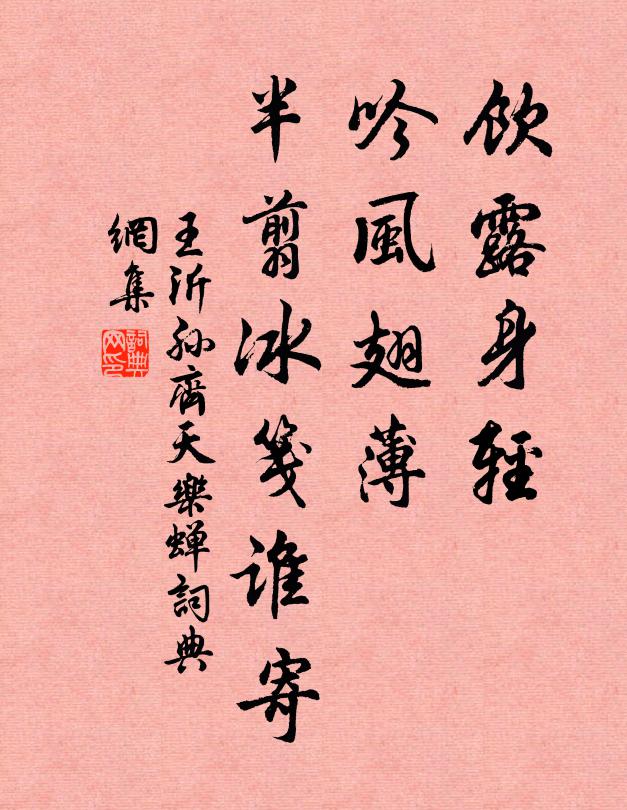 飲露身輕
吟風翅薄
半剪冰箋誰寄
王沂孙齊天樂蝉詞典
網集
詞典
网印